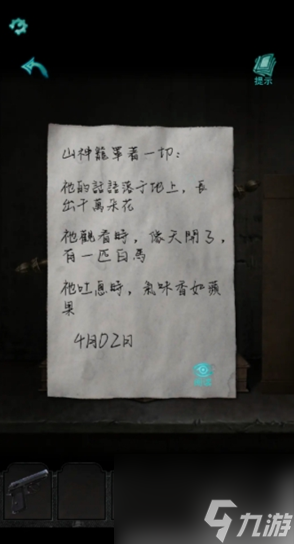 提示
山神籠罩着一切:
祂的話語落于地上,長
出千萬朵花
祂觀看時,像天開了,
有一匹白馬
祂吐息時,氣味香如蘋
果
4月02日
九游